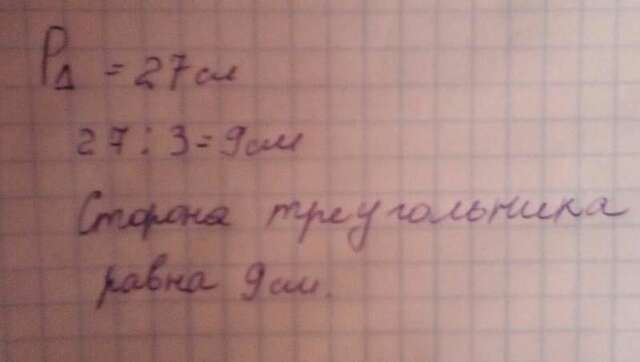 P△ = 27см
27 : 3 = 9см
Сторона треугольника
равна 9см.